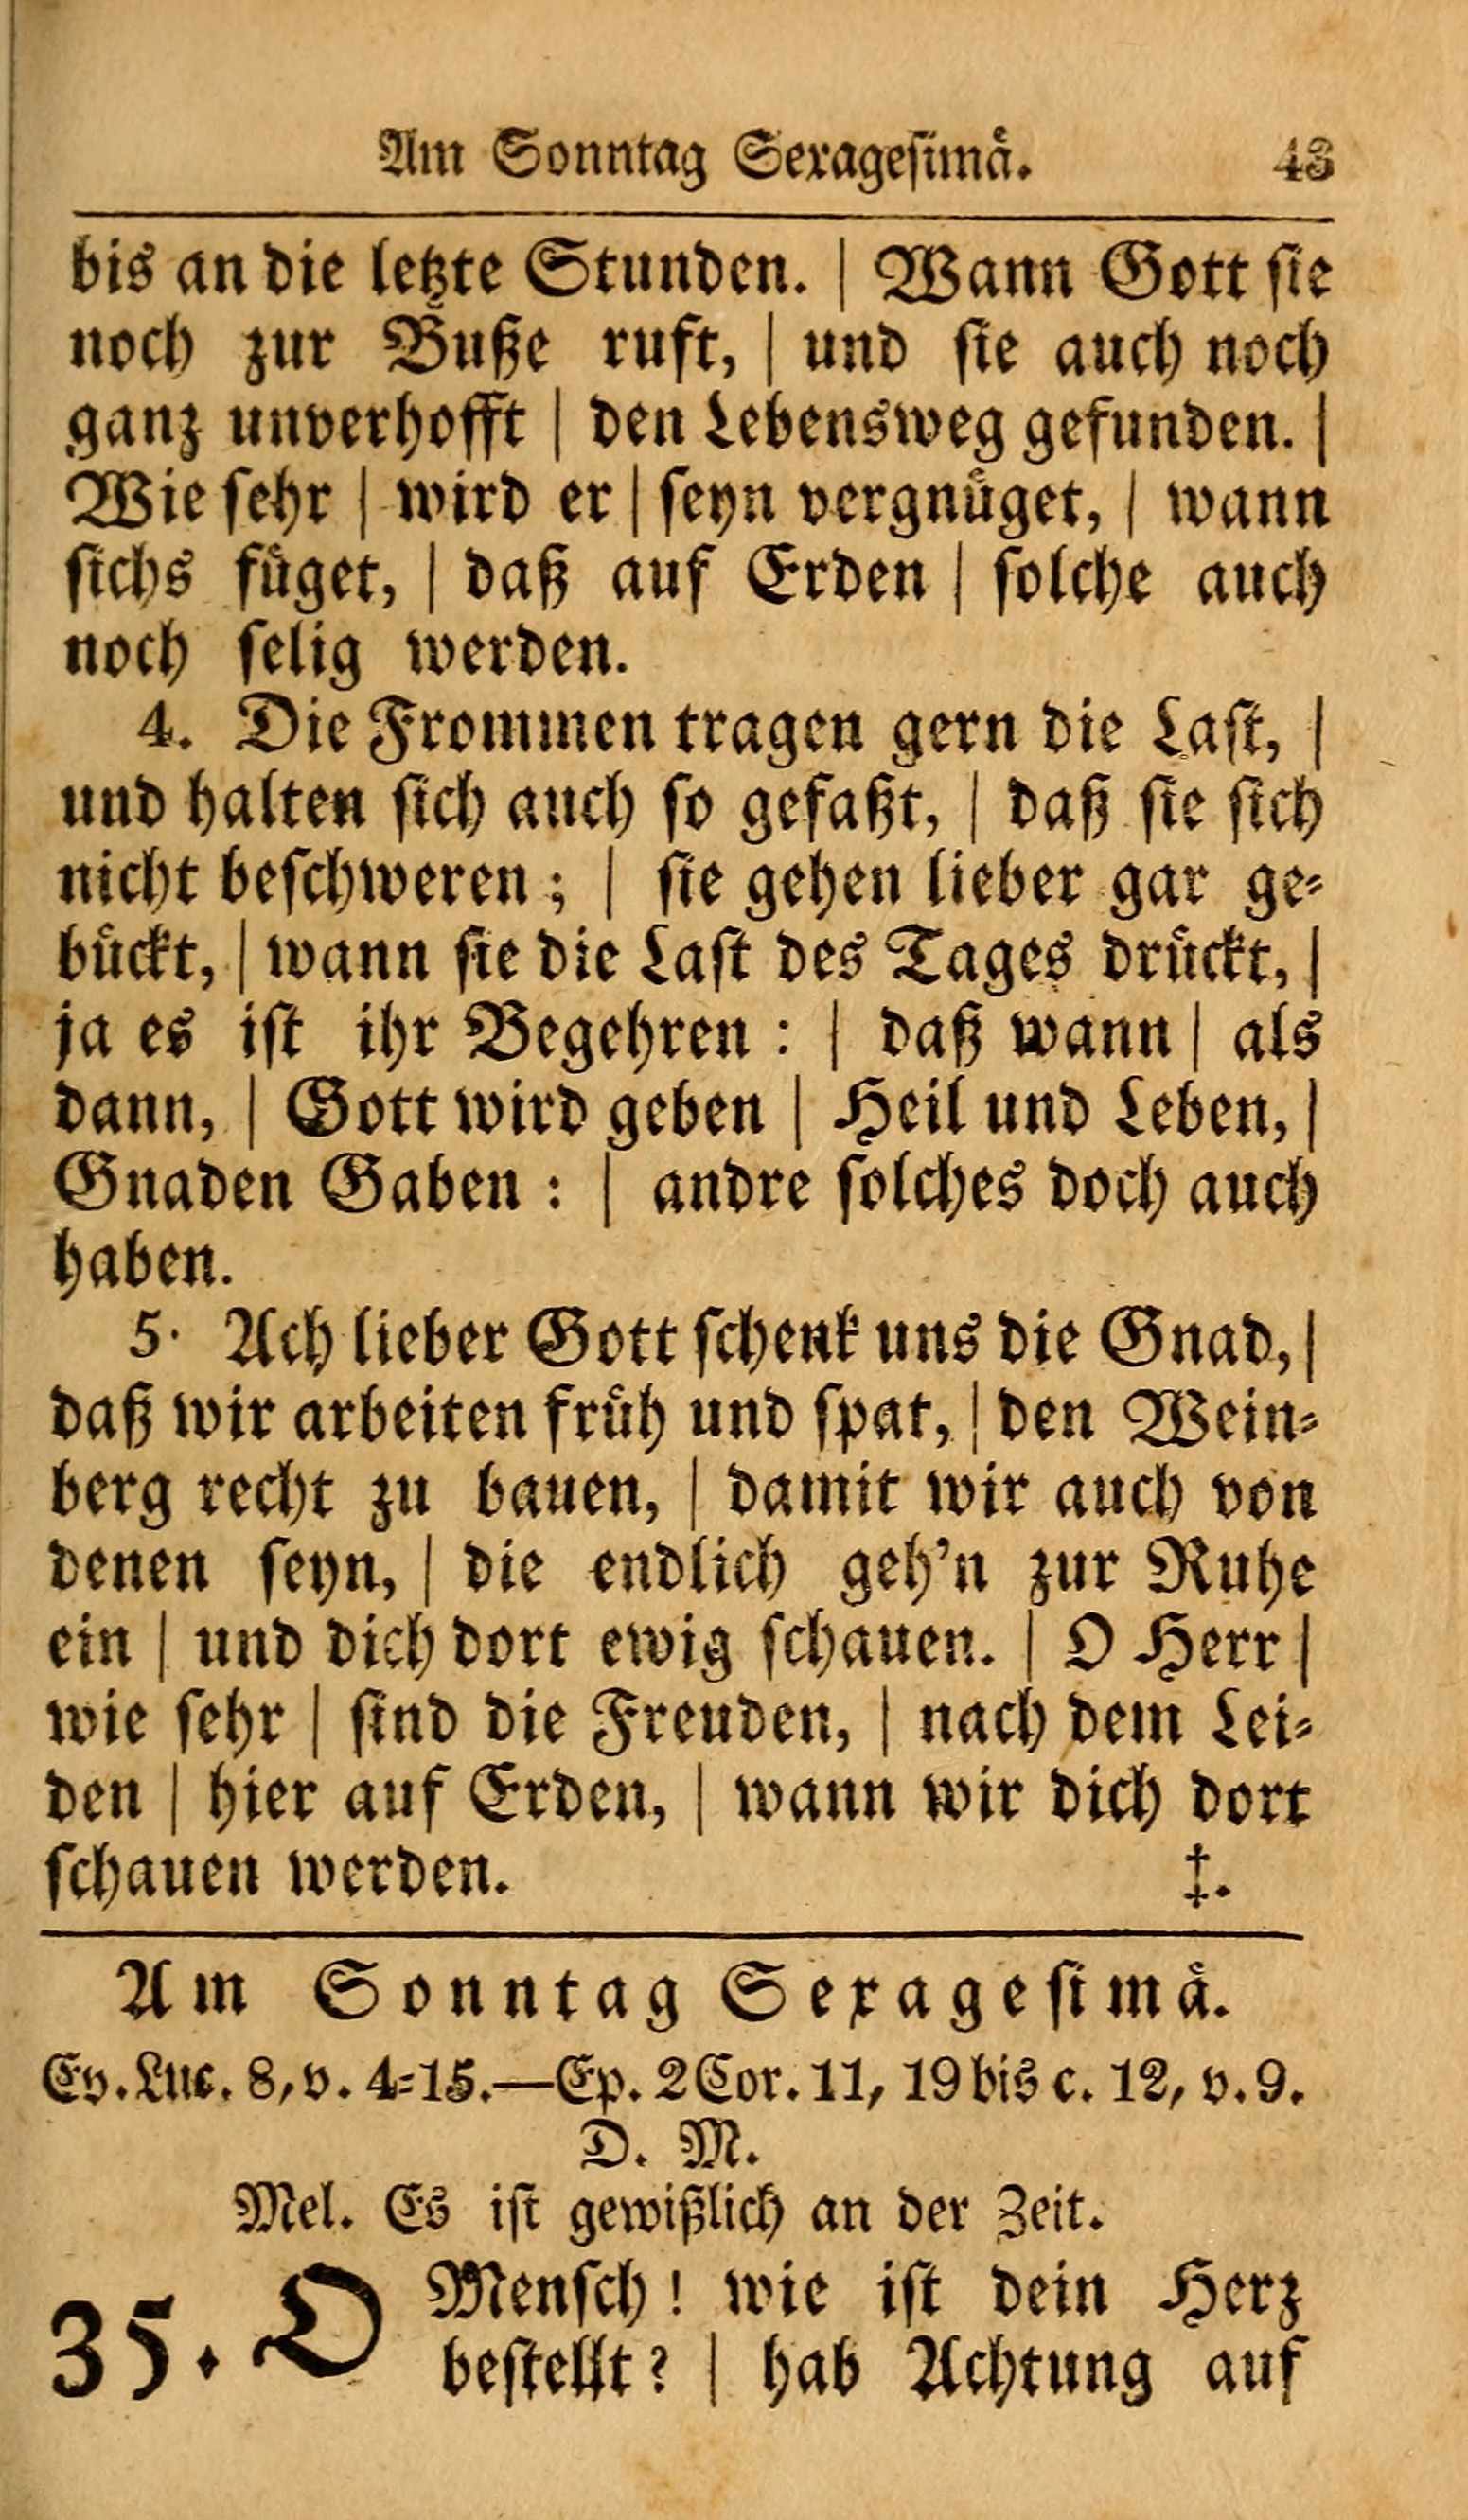 Am Sonntag Sexagesimä. 43
bis an die letzte Stunden. | Wann Gott sie
noch zur Buße ruft, | und sie auch noch
ganz unverhofft | den Lebensweg gefunden. |
Wie sehr | wird er | seyn vergnüget, | wann
sichs füget, | daß auf Erden | solche auch
noch selig werden.
4. Die Frommen tragen gern die Last, |
und halten sich auch so gefaßt, | daß sie sich
nicht beschweren; | sie gehen lieber gar ge-
bückt, | wann sie die Last des Tages drückt, |
ja es ist ihr Begehren: | daß wann | als
dann, | Gott wird geben | Heil und Leben, |
Gnaden Gaben: | andre solches doch auch
haben.
5. Ach lieber Gott schenk uns die Gnad, |
daß wir arbeiten früh und spat, | den Wein-
berg recht zu bauen, | damit wir auch von
denen seyn, | die endlich geh'n zur Ruhe
ein | und dich dort ewig schauen. | O Herr |
wie sehr | sind die Freuden, | nach dem Lei-
den | hier auf Erden, | wann wir dich dort
schauen werden. ‡.
Am Sonntag Sexagesimä.
Ev. Luc. 8, v. 4-15.—Ep. 2 Cor. 11, 19 bis c. 12, v. 9.
D. M.
Mel. Es ist gewißlich an der Zeit.
35. O Mensch! wie ist dein Herz
bestellt? | hab Achtung auf